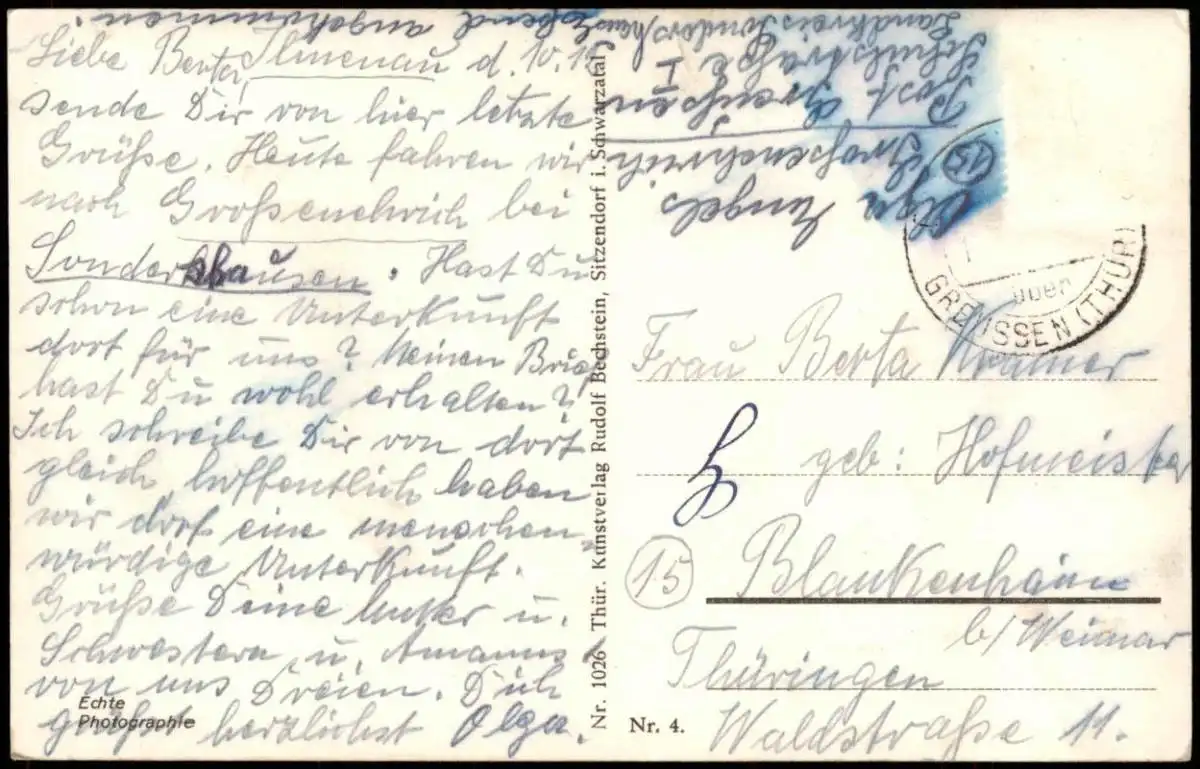 Liebe Berta! Ilmenau d. 10.
sende Dir von hier letzte
Grüße. Heute fahren wir
nach Großenehrich bei
Sondershausen. Hast Du
schon eine Unterkunft
dort für uns? Meinen Brief
hast Du wohl erhalten?
Ich schreibe Dir von dort
gleich, hoffentlich haben
wir dort eine menschen-
würdige Unterkunft.
Grüße Deine Mutter u.
Schwestern u. Amanns
von uns Dreien. Dich
grüßt herzlichst Olga.
Echte
Photographie
Nr. 1026 Thür. Kunstverlag Rudolf Bechstein, Sitzendorf i. Schwarzatal
Olga Engels
(15) Großenehrich
Post Greußen
Schulstraße 1
Landkreis Sondershausen
abend angekommen
über
GREUSSEN (THÜR)
Frau Berta Krämer
geb: Hofmeister
(15) Blankenhain
b/ Weimar
Thüringen
Nr. 4. Waldstraße 11.